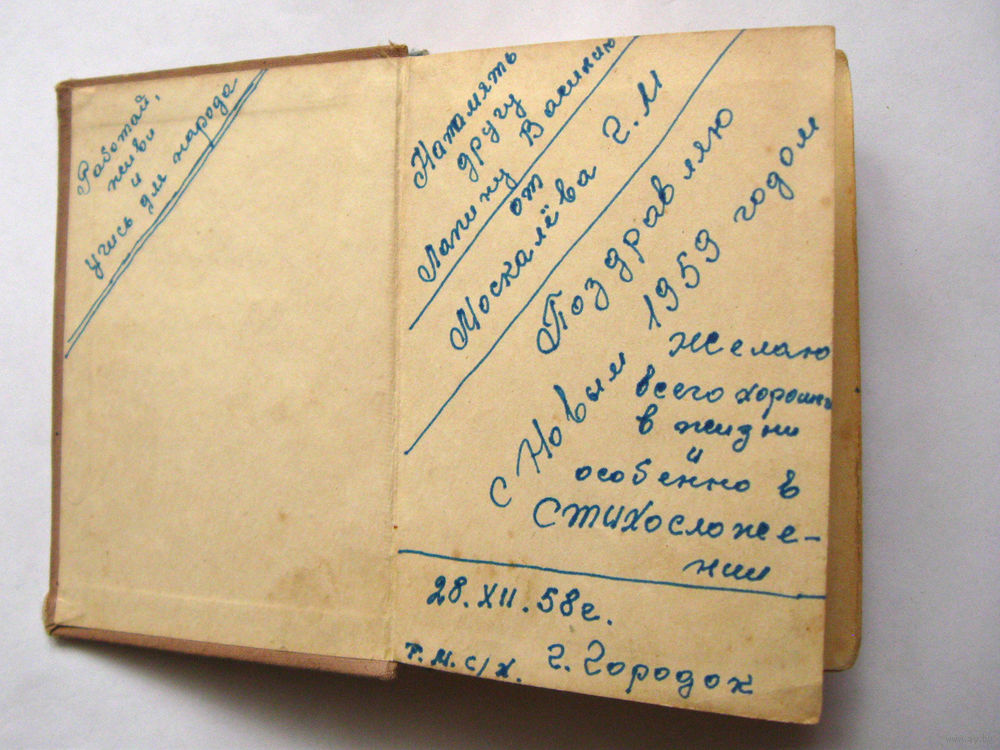 Работай,
живи
и
учись для народа
На память
другу
Лапину Василию
от
Москалёва Г. М
Поздравляю
с Новым 1959 годом
Желаю
всего хорошего
в жизни
и
особенно в
стихосложе-
нии
28.XII.58г.
т.м.с/х. г. Городок